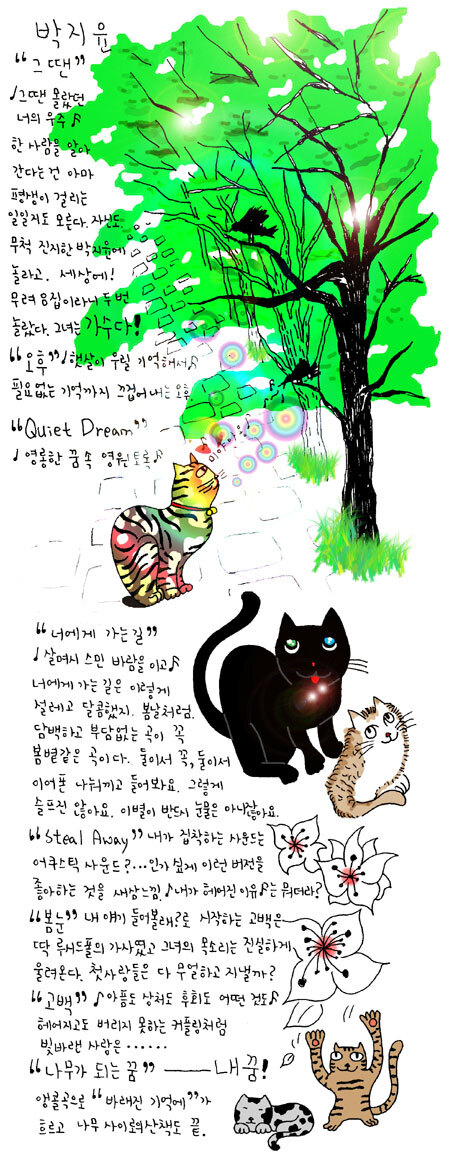 박지윤
"그땐"
♪그땐 몰랐던
너의 우주♪
한 사람을 알아
간다는 건 아마
평생이 걸리는
일일지도 모른다. 자신도.
무척 진지한 박지윤에
놀라고. 세상에!
무려 8집이라니 두번
놀랐다. 그녀는 가수다!
"오후" ♩햇살이 우릴 기억해서♪
필요없는 기억까지 끄집어 내는 오후
"Quiet Dream"
♩ 영롱한 꿈속 영원토록♪
미야아옹
"너에게 가는길"
♩살며시 스민 바람을 이고♪
너에게 가는 길은 이렇게
설레고 달콤했지. 봄날처럼.
담백하고 부담없는 곡이 꼭
봄볕같은 곡이다. 둘이서 꼭, 둘이서
이어폰 나눠끼고 들어봐요. 그렇게
슬프진 않아요. 이별이 반드시 눈물은 아니잖아요.
"Steal Away" 내가 집착하는 사운드는
어쿠스틱 사운드?...인가 싶게 이런 버전을
좋아하는 것을 새삼느낌. ♪내가 헤어진 이유♪는 뭐더라?
"봄눈" 내 얘기 들어볼래?로 시작하는 고백은
딱 루시드폴의 가사였고 그녀의 목소리는 진실하게
울려온다. 첫사랑들은 다 무얼하고 지낼까?
"고백" ♪아픔도 상처도 후회도 어떤 것도♪
헤어지고도 버리지 못하는 커플링처럼
빛바랜 사랑은……
"나무가 되는 꿈" ― 내 꿈!
앵콜곡으로 "바래진 기억에"가
흐르고 나무 사이로의 산책도 끝.